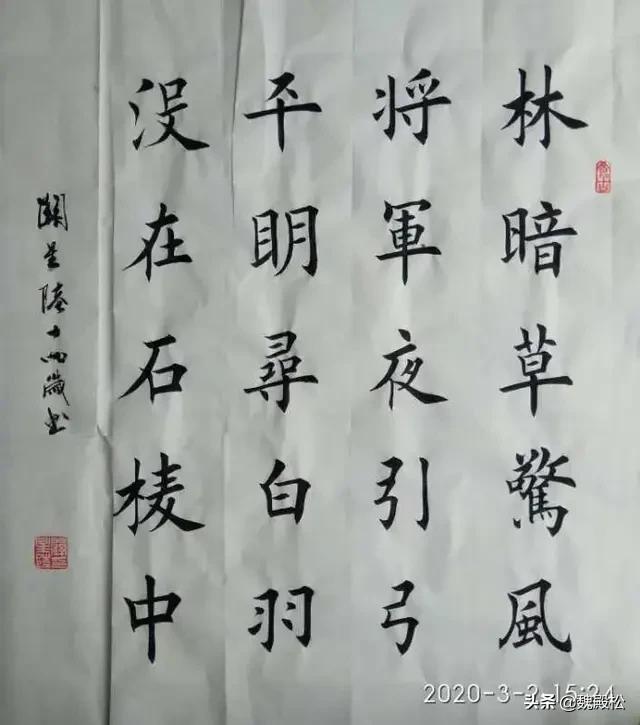 林暗草驚風
将軍夜引弓
平明尋白羽
没在石棱中
陸十四歲书
2020-3-2 15:24
头条 @魏殿松